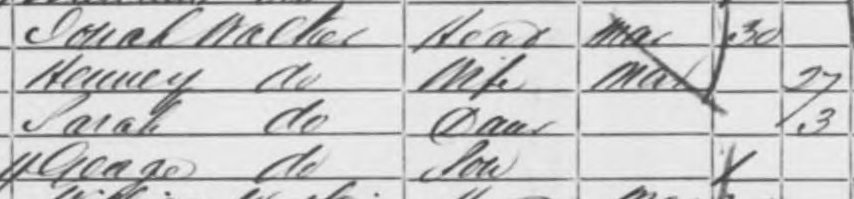 Josiah Walker Head Mar 30
Henney do Wife Mar 27
Sarah do Daur 3
George do Son